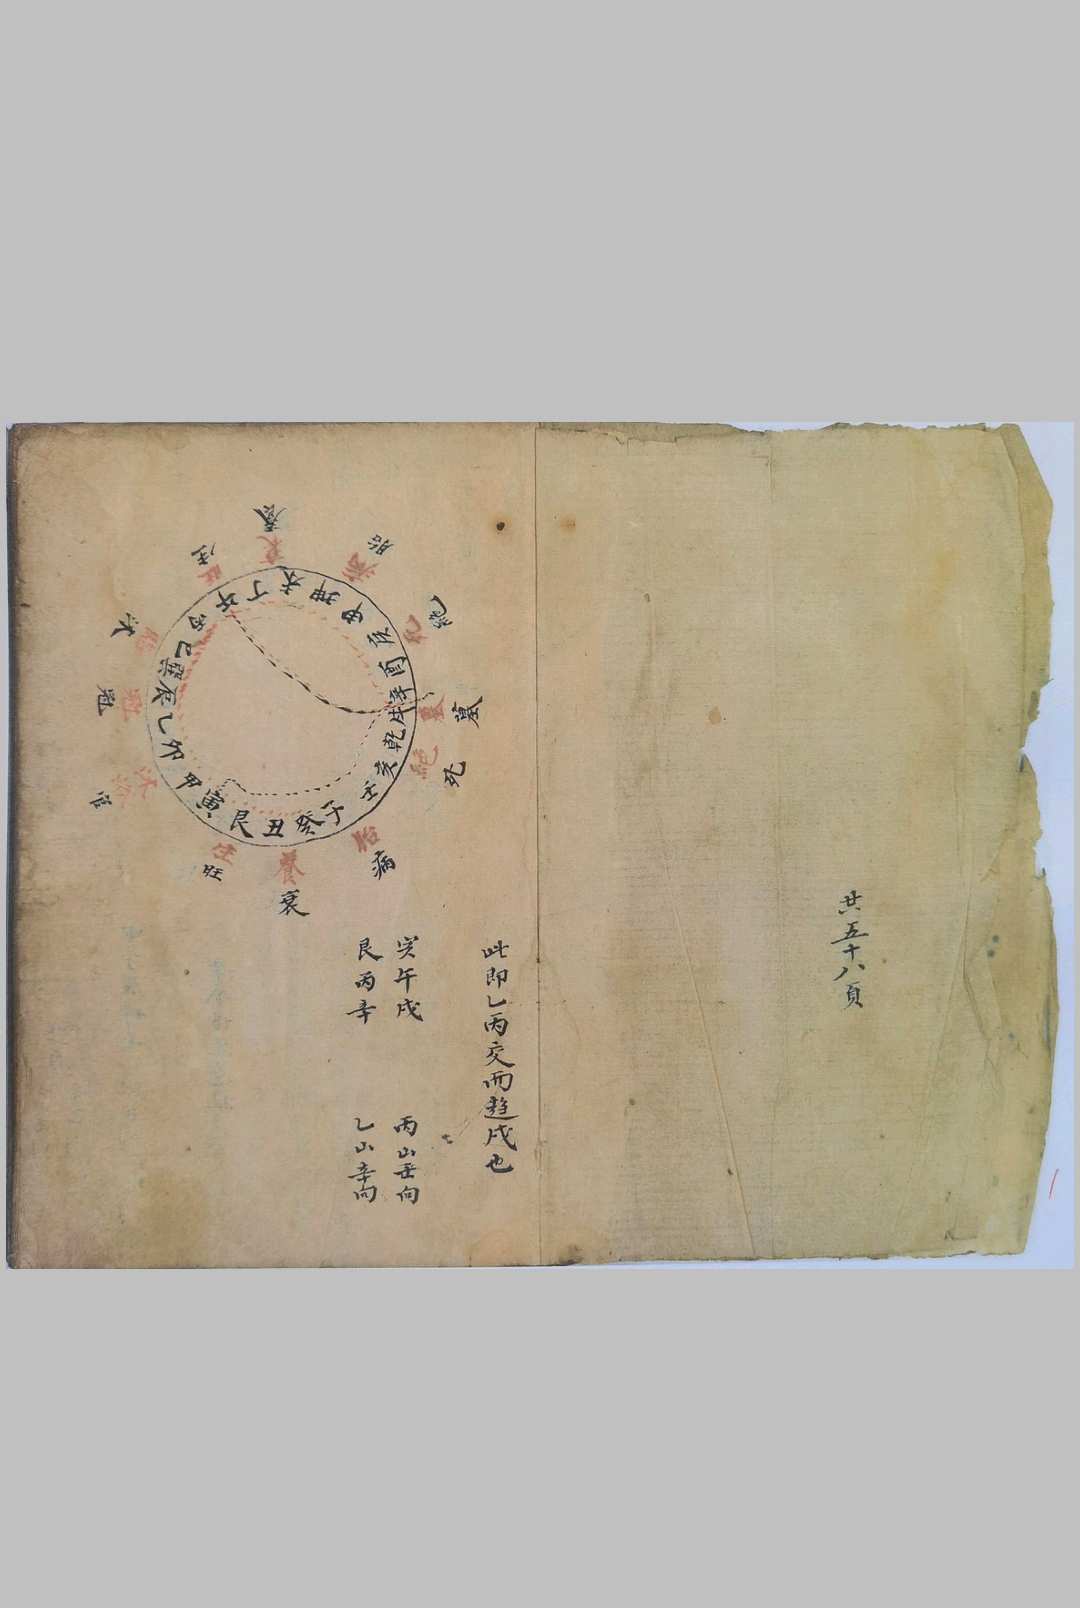 共五十八頁
此即乙丙交而趨戌也
寅午戌 丙山壬向
艮丙辛 乙山辛向
子癸丑艮寅甲卯乙辰巽巳丙午丁未坤申庚酉辛戌乾亥壬
養
胎
絕
墓
死
病
衰
旺
冠
沐
生
衰
病
死
墓
絕
胎
養
生
沐浴
冠
臨
旺